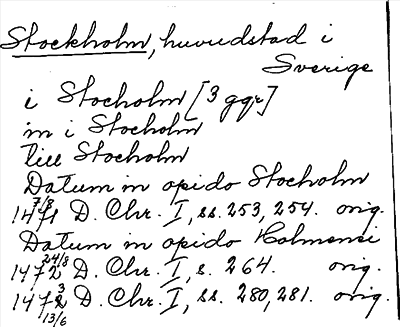 Stockholm, huvudstad i
Sverige
i Stocholm [3 ggr]
in i Stocholm
till Stocholm
Datum in opido Stocholm
1471 7/8 D. Chr. I, ss. 253, 254. orig.
Datum in opido Holmensi
1472 24/8 D. Chr. I, s. 264. orig.
1473 13/6 D. Chr. I, ss. 280, 281. orig.